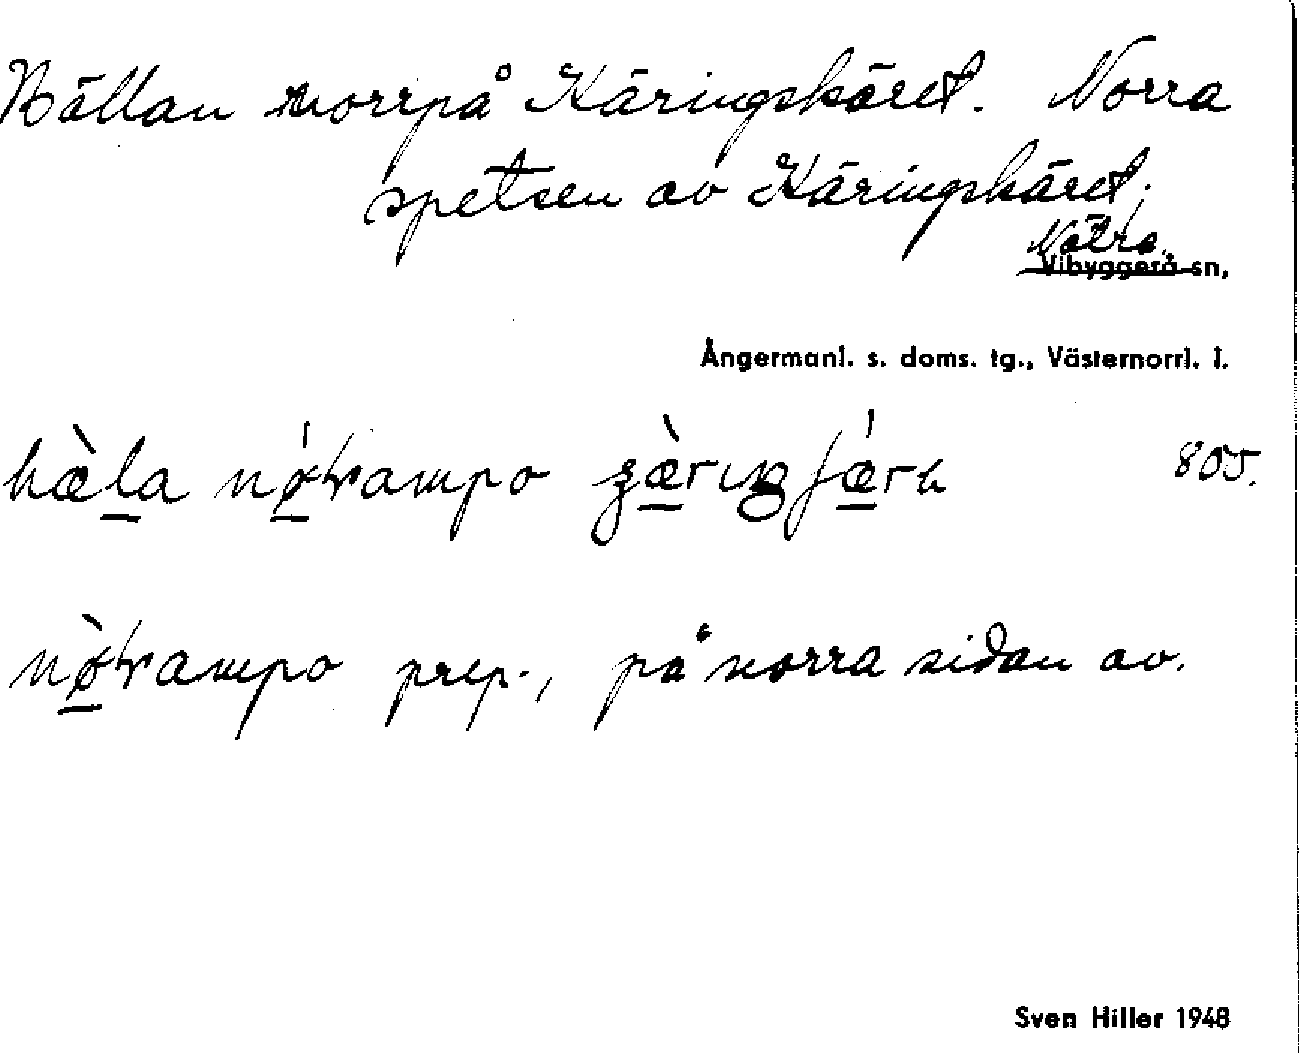 Hällan norrpå Käringskäret. Norra
spetsen av Käringskäret.
Nätra
Vibyggerå sn,
Ångermanl. s. doms. tg., Västernorrl. l.
805.
prep., på norra sidan av.
Sven Hiller 1948